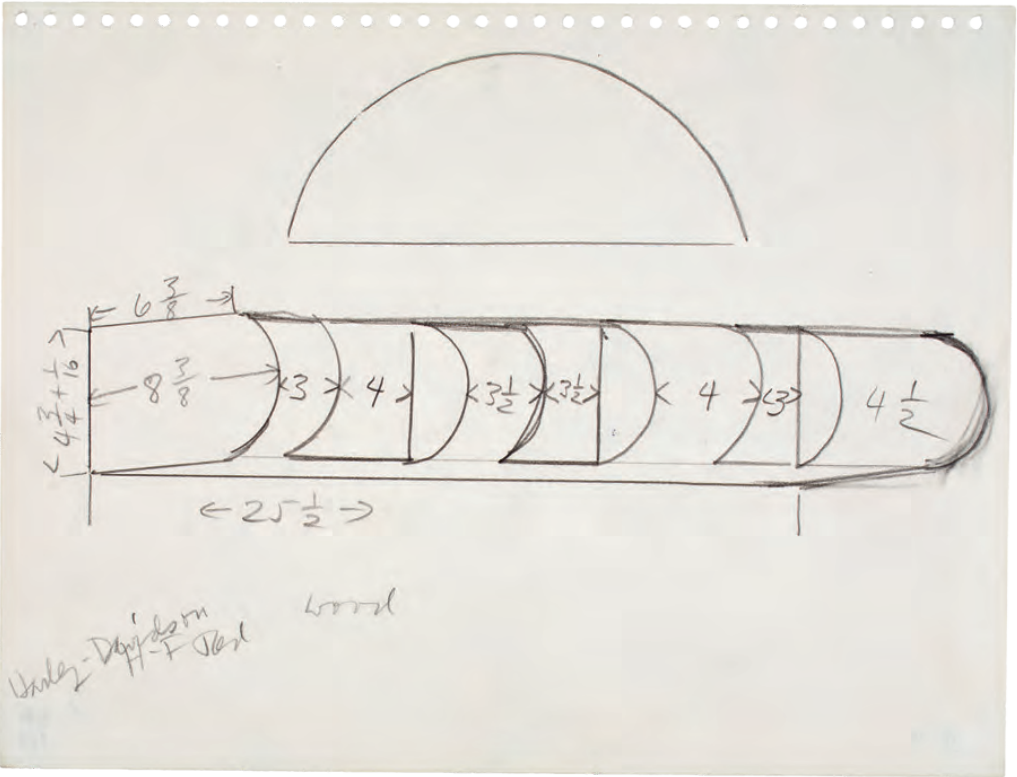 6 3/8
4 3/4 + 1/16
8 3/8 3 4 3 1/2 3 1/2 4 3 4 1/2
25 1/2
wood
Harley-Davidson
Red